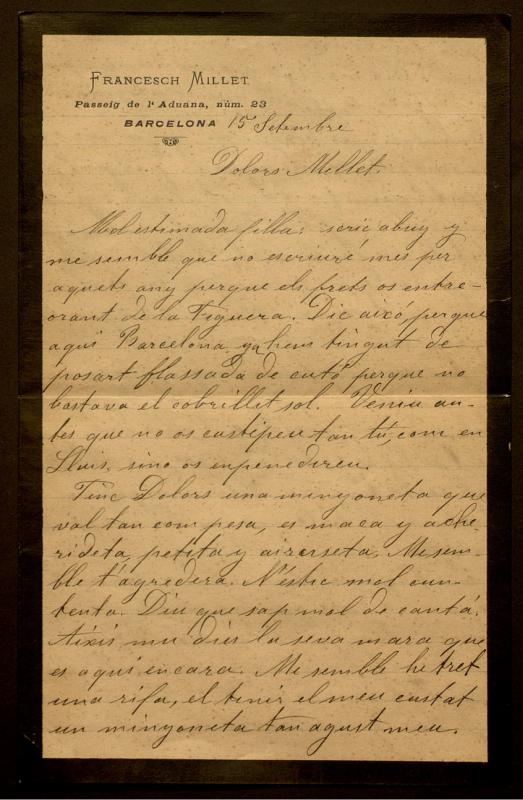 FRANCESCH MILLET
Passeig de l'Aduana, núm. 23
BARCELONA 15 Setembre
Dolors Millet.
Mol estimada filla: seric abuy y
me semble que no escriuré mes per
aquets any perque els frets os entre-
orant de la Figuera. Dic aixó perque
aqui Barcelona ya hem tingut de
posart flassada de cutó perque no
bastava el cobrillit sol. Veniu an-
tes que no os custipeu tan tú, com en
Lluis, sino os enpenedireu.
Tinc Dolors una minyoneta que
val tan com pesa, es maca y ache-
rideta, petita y airerseta. Me sem-
ble t'agredera. N'éstic mol cun-
tenta. Diu que sap mol de cantá.
Aixis mu dies la seva mara que
es aquí encara. Me semble he tret
una rifa, el tenir el meu custat
un minyoneta tan agust meu.